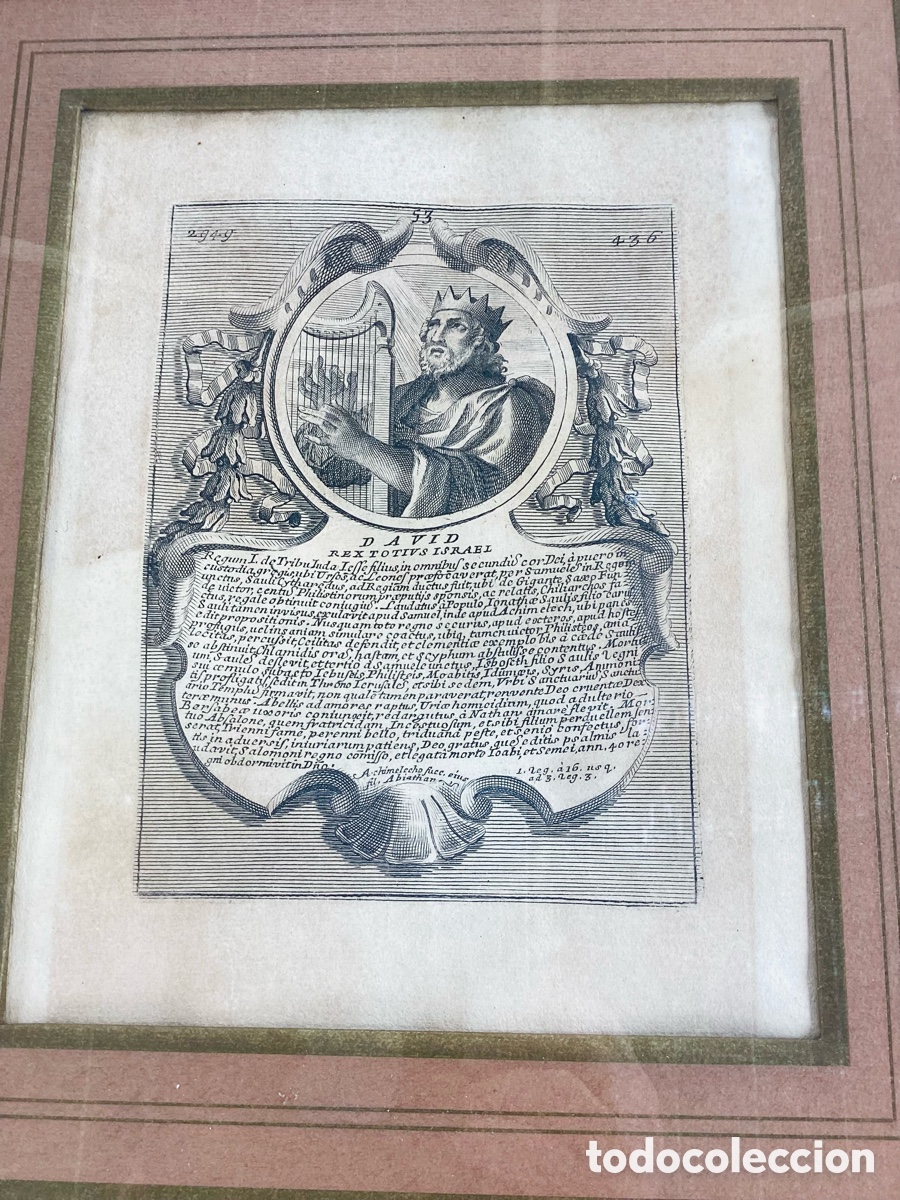 53
2949 436
DAVID
REX TOTIVS ISRAEL
Regum I. de Tribu Iuda Iesse filius, in omnibus secundũ cor Dei, à puero in
custodia gregũ, ubi Ursos, ac Leones præfocaverat, per Samuelẽ in Regem
unctus, Sauli Cytharædus, ad Regiam ductus fuit, ubi de Gigante, sæpe Fur
te victor, centũ Philistinorum præputijs sponsis, ac relatis, Chiliarchos fa
ctus, regale obtinuit coniugiũ. Laudatus à Populo, Ionathæ Saulis filio carus
Sauli tamen invisus, exulavit apud Samuel, inde apud Achimelech, ubi panes
edit propositionis. Nusquam toto regno securius, apud exteros, apud hostes
profugus, vel insaniam simulare coactus, ubiq. tamen victor Philisteos, Ama
lecitas, percussit, Ceilitas defendit, et clementiæ exemplo bis à cæde Saulis
abstinuit, Chlamidis ora, hastam, et scyphum abstulisse contentus. Mortu
um, Saulẽ deflevit, et tertio à Samuele unctus, Isboseth filio Saulis regni
sui æmulo subacto Iebusæis, Philisteis, Moabitis, Idumæis, Syris, Ammoni
tis profligatis, sedit in Throno Ierusalẽ, et sibi sedem, Urbi Sanctuariũ, Sanctu
ario Templũ firmavit, non quale tamen paraverat, renvente Deo cruentæ Dex
teræ munus. A bellis ad amores raptus, Uriæ homicidium, quod adulterio
Bersabeæ uxoris coniunxit, redargutus à Nathan, amare flevit. Mor
tuo Absolone, quem fratricidam, Incestuosum, et sibi filium perduellem
senserat, trienni fame, perenni bello, triduana peste, et senio confectus, for
tis in adversis, iniuriarum patiens, Deo gratus, que editis psalmis la
udavit, Salomoni regno comisso, et legata morte Ioabi, et Semei, ann. 40 re
gni obdormivit in Dño.
Achimelecho succ. eius
fil. Abiathar.
1. Reg. à 16. usq.
ad 3. Reg. 3.
todocoleccion